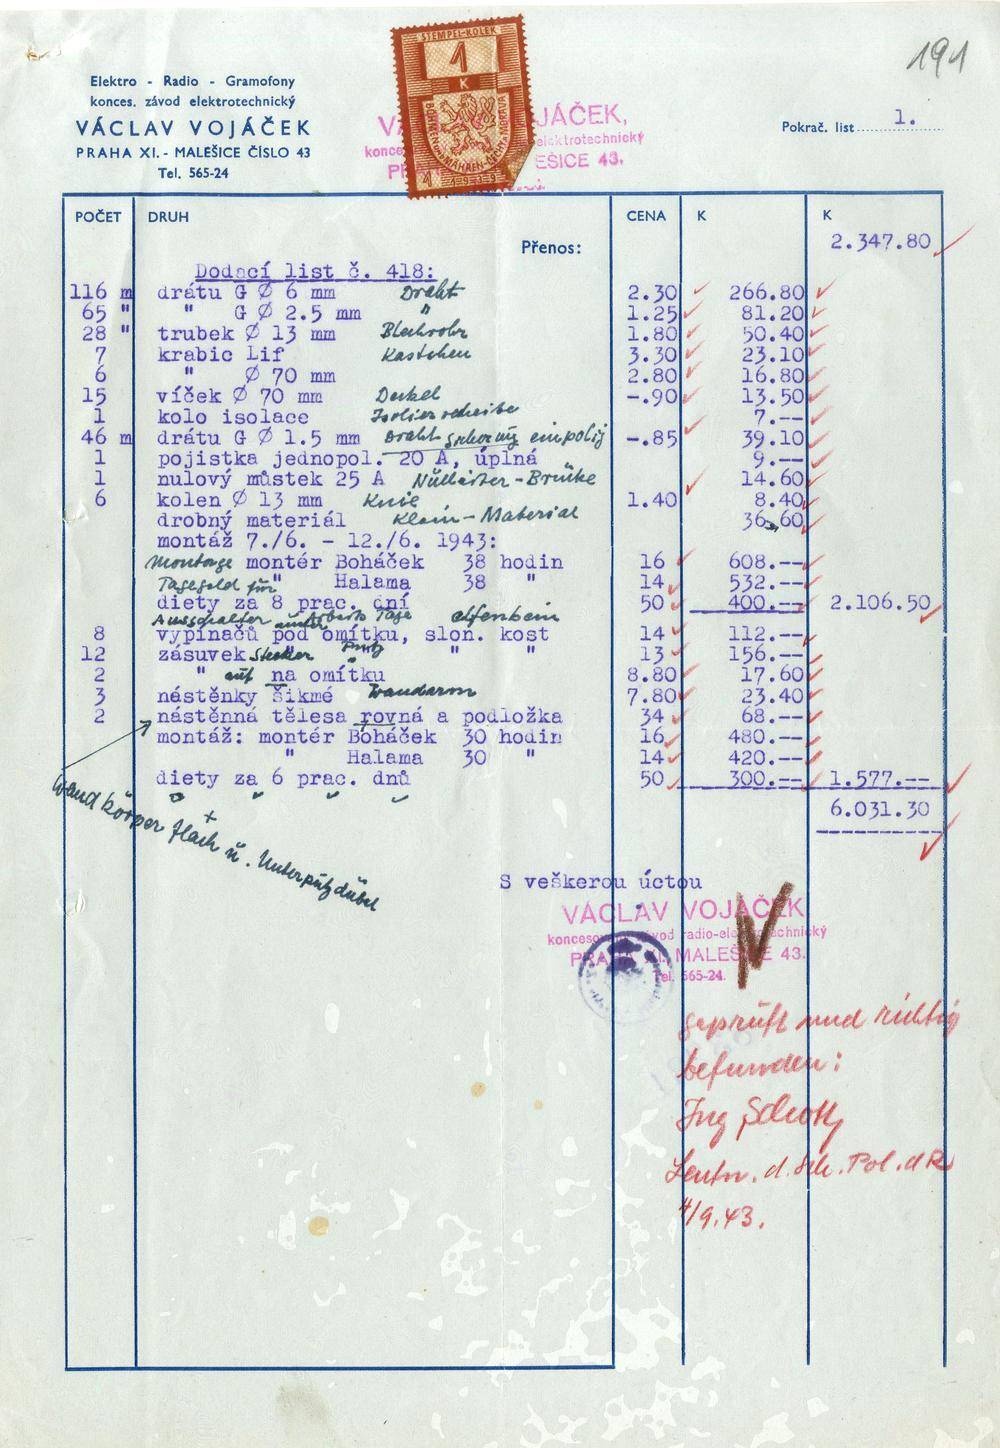 191
STEMPEL-KOLEK
1
K
BÖHMEN u. MÄHREN - ČECHY a MORAVA
Elektro - Radio - Gramofony
konces. závod elektrotechnický
VÁCLAV VOJÁČEK
PRAHA XI. - MALEŠICE ČÍSLO 43
Tel. 565-24
JÁČEK,
elektrotechnický
EŠICE 43.
Pokrač. list 1.
POČET DRUH CENA K K
Přenos: 2.347.80
Dodací list č. 418:
116 m drátu G Ø 6 mm Draht 2.30 266.80
65 " " G Ø 2.5 mm " 1.25 81.20
28 " trubek Ø 13 mm Blechrohr 1.80 50.40
7 krabic Lif Kastchen 3.30 23.10
6 " Ø 70 mm 2.80 16.80
15 víček Ø 70 mm Deckel -.90 13.50
1 kolo isolace Isolierscheibe 7.--
46 m drátu G Ø 1.5 mm Draht einpolig -.85 39.10
1 pojistka jednopol. 20 A, úplná 9.--
1 nulový můstek 25 A Nulleiter-Brücke 14.60
6 kolen Ø 13 mm Knie 1.40 8.40
drobný materiál Klein-Material 36.60
montáž 7./6. - 12./6. 1943:
Montage montér Boháček 38 hodin 16 608.--
Tagegeld für " Halama 38 " 14 532.--
diety za 8 prac. dní 50 400.-- 2.106.50
Ausschalter unter Arbeits Tage elfenbein
8 vypínačů pod omítku, slon. kost 14 112.--
12 zásuvek Stecker " Putz " " 13 156.--
2 " auf na omítku 8.80 17.60
3 nástěnky šikmé Wandarm 7.80 23.40
2 nástěnná tělesa rovná a podložka 34 68.--
montáž: montér Boháček 30 hodin 16 480.--
" Halama 30 " 14 420.--
diety za 6 prac. dnů 50 300.-- 1.577.--
6.031.30
Wandkörper flach u. Unterputzdübel
S veškerou úctou
VÁCLAV VOJÁČEK
koncesov závod radio-elektrotechnický
PRAHA XI., MALEŠICE 43.
Tel. 565-24.
geprüft und richtig
befunden:
Ing Schott
Leutn. d. Sch. Pol. d R
4/9.43.